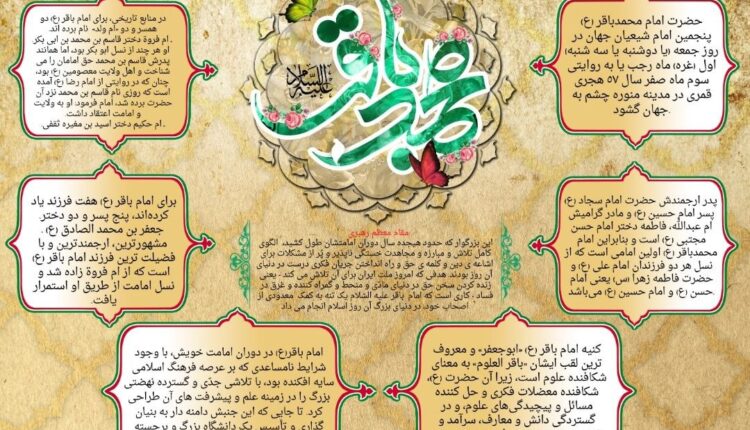 حضرت امام محمدباقر (ع)
پنجمین امام شیعیان جهان در
روز جمعه (یا دوشنبه یا سه شنبه)
اول (غره) ماه رجب یا به روایتی
سوم ماه صفر سال ۵۷ هجری
قمری در مدینه منوره چشم به
جهان گشود
محمد باقر
علیه السلام
در منابع تاریخی، برای امام باقر (ع) دو
همسر و دو «ام ولد» نام برده اند.
ـ ام فروة دختر قاسم بن محمد بن ابی بکر
او هر چند از نسل ابو بکر بود، اما همانند
پدرش قاسم بن محمد حق امامان را می
شناخت و اهل ولایت معصومین (ع) بود،
چنان که در روایتی از امام رضا (ع) آمده
است که روزی نام قاسم بن محمد نزد آن
حضرت برده شد، امام فرمود: او به ولایت
و امامت اعتقاد داشت.
ـ ام حکیم دختر اسید بن مغیره ثقفی.
پدر ارجمندش حضرت امام سجاد (ع)
پسر امام حسین (ع) و مادر گرامیش
ام عبدالله، فاطمه دختر امام حسن
مجتبی (ع) است و بنابراین امام
محمدباقر (ع) اولین امامی است که از
نسل هر دو فرزندان امام علی (ع) و
حضرت فاطمه زهرا (س) یعنی امام
حسن (ع) و امام حسین (ع) می‌باشد.
مقام معظم رهبری
این بزرگوار که حدود هیجده سال دوران امامتشان طول کشید، الگوی
کامل تلاش و مبارزه و مجاهدت خستگی ناپذیر و پُر از مشکلات برای
اشاعه ی دین و کلمه ی حق و راه انداختن جریان فکری درست در دنیای
آن روز بودند. هدفی که امروز ملت ایران برای آن تلاش می کند - یعنی
زنده کردن سخن حق در دنیای مادّی و منحط و گمراه کننده و غرق در
فساد ، کاری است که امام باقر علیه السّلام یک تنه به کمک معدودی از
اصحاب خود، در دنیای بزرگ آن روز اسلام انجام می داد
برای امام باقر (ع) هفت فرزند یاد
کرده‌اند، پنج پسر و دو دختر.
جعفر بن محمد الصادق (ع)
مشهورترین، ارجمندترین و با
فضیلت ترین فرزند امام باقر (ع)
است که از ام فروة زاده شد و
نسل امامت از طریق او استمرار
یافت.
کنیه امام باقر (ع) «ابوجعفر» و معروف
ترین لقب ایشان «باقر العلوم» به معنای
شکافنده علوم است، زیرا آن حضرت (ع)،
شکافنده معضلات فکری و حل کننده
مسائل و پیچیدگی‌های علوم، و در
گستردگی دانش و معارف، سرآمد و
امام باقر(ع) در دوران امامت خویش، با وجود
شرایط نامساعدی که بر عرصه فرهنگ اسلامی
سایه افکنده بود، با تلاشی جدّی و گسترده نهضتی
بزرگ را در زمینه علم و پیشرفت های آن طراحی
کرد. تا جایی که این جنبش دامنه دار به بنیان
گذاری و تأسیس یک دانشگاه بزرگ و برجسته